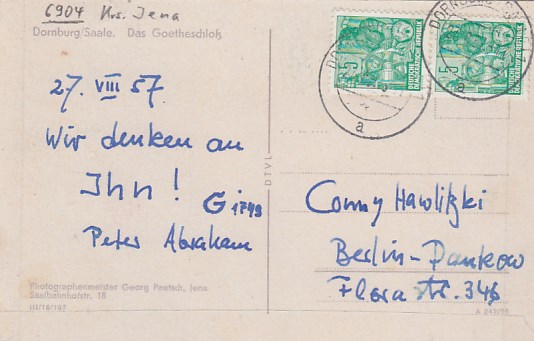 6904 Krs. Jena
Dornburg/Saale. Das Goetheschloß
27. VIII 57.
Wir denken an
Ihn!
G 1749
Peter Abraham
Photographenmeister Georg Peetsch, Jena
Saalbahnhofstr. 18
III/18/187
DTVL
5
DEUTSCHE DEMOKRATISCHE REPUBLIK
5
DEUTSCHE DEMOKRATISCHE REPUBLIK
a
a
Conny Hawlitzki
Berlin-Pankow
Flora str. 34b